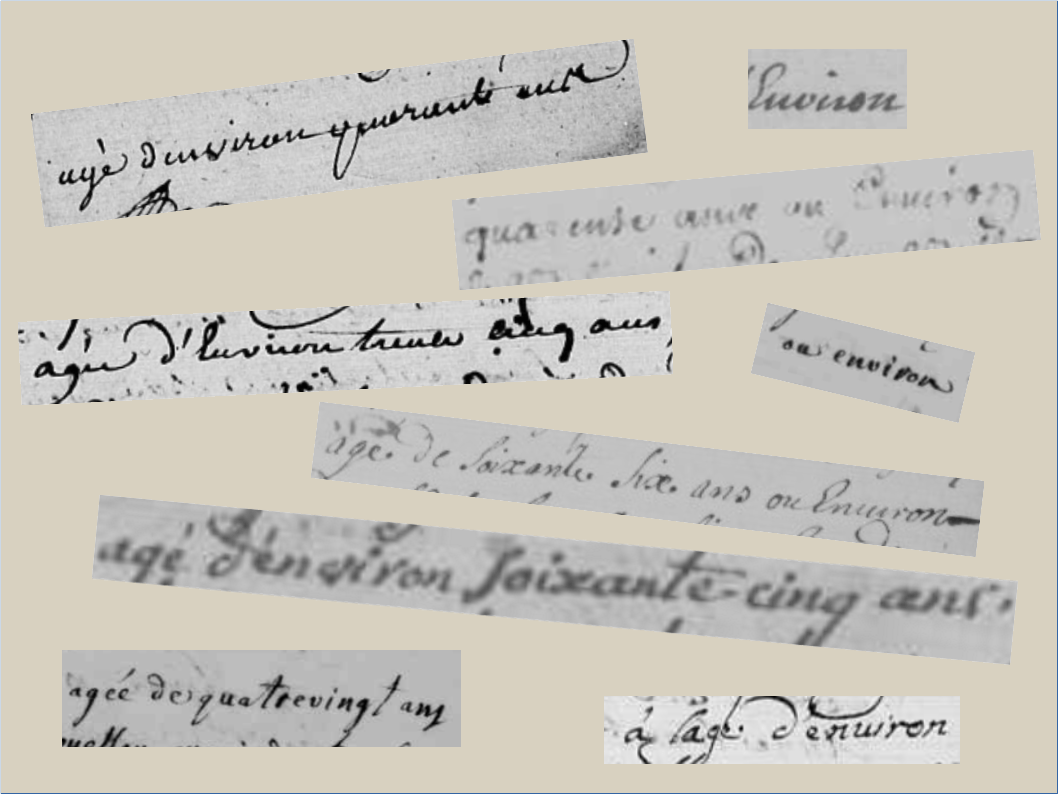 agé denviron quarante ans
Environ
quarente anne ou Environ
agée d'Environ trente cinq ans
ou environ
âgé de soixante six ans ou Environ
agé d'énviron soixante-cinq ans.
agée de quatrevingt ans
à lage d'enuiron